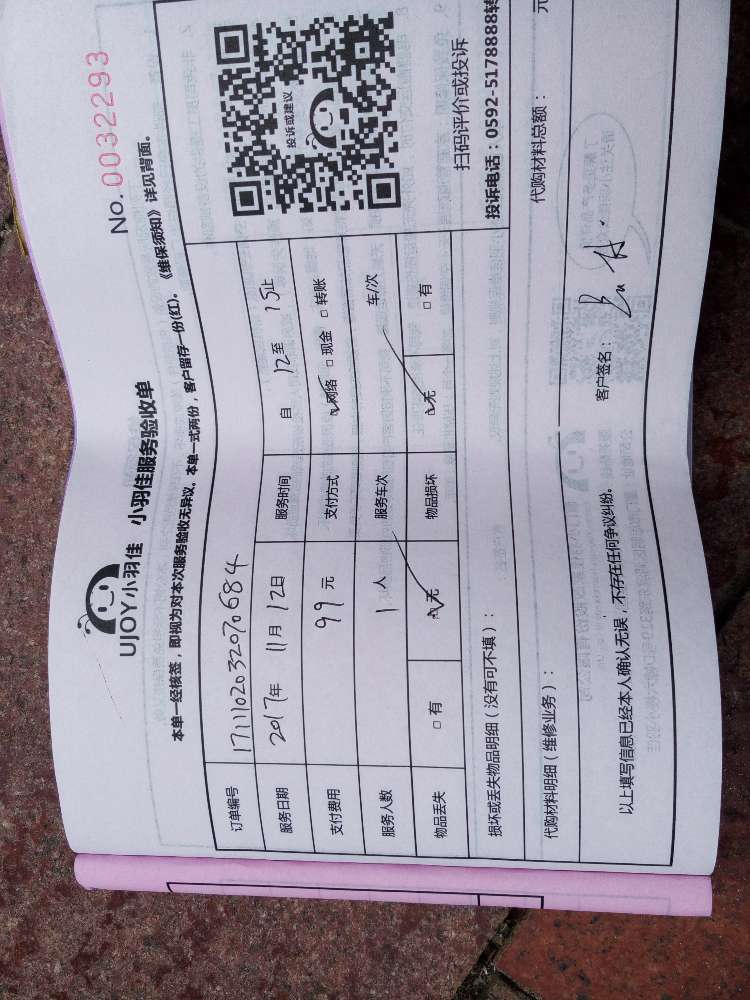 No. 0032293
UJOY小羽佳 小羽佳服务验收单
本单一经核签，即视为对本次服务验收无异议。本单一式两份，客户留存一份(红)。《维保须知》详见背面。
订单编号 1711102032070684
服务日期 2017年 11月 12日 服务时间 自 12至 15止
支付费用 99 元 支付方式 ☑网络 □现金 □转账
服务人数 1 人 服务车次 车/次
物品丢失 □有 ☑无 物品损坏 ☑无 □有
投诉或建议
扫码评价或投诉
投诉电话：0592-5178888转
损坏或丢失物品明细（没有可不填）：
代购材料明细（维修业务）： 代购材料总额： 元
以上填写信息已经本人确认无误，不存在任何争议纠纷。 客户签名：